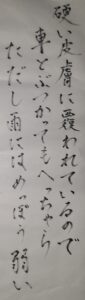 硬い皮膚に覆われているので
車とぶつかってもへっちゃら
ただし雨にはめっぽう弱い